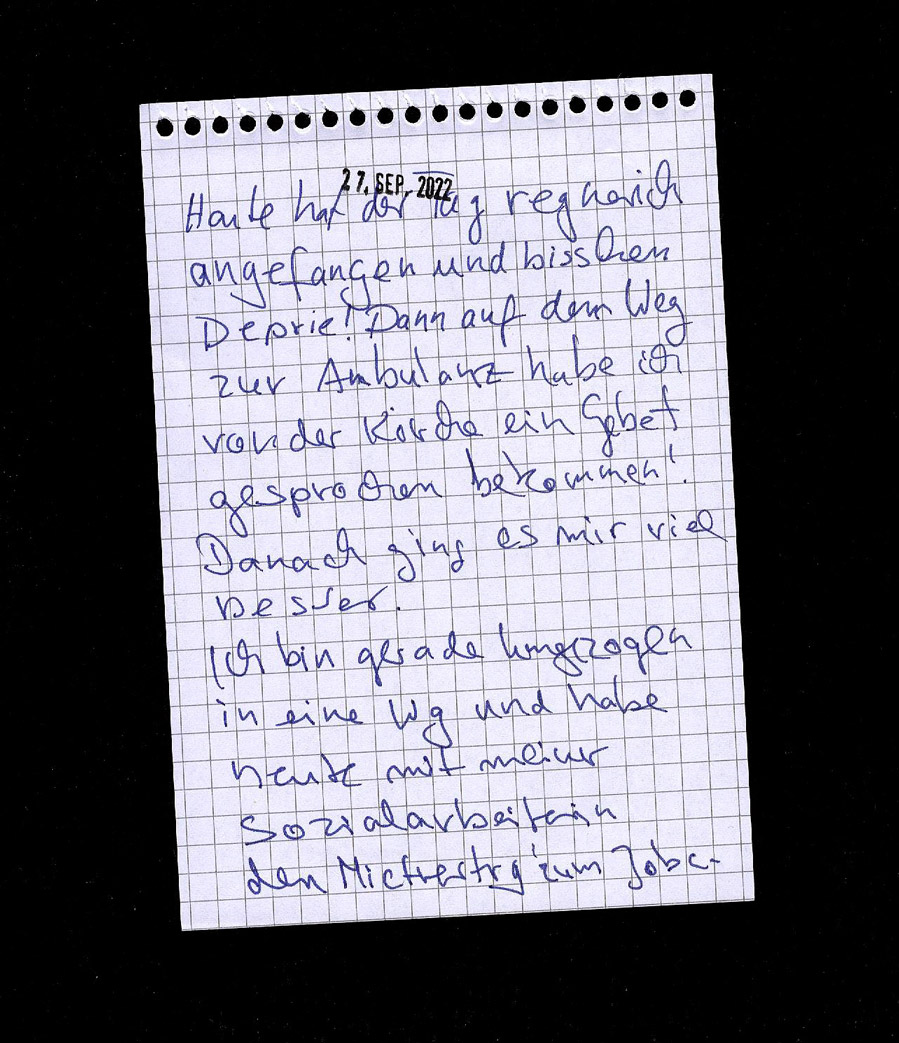 27. SEP. 2022
Heute hat der Tag regnerich
angefangen und bisschen
Deprie! Dann auf dem Weg
zur Ambulanz habe ich
von der Kirche ein Gebet
gesprochen bekommen!
Danach ging es mir viel
besser.
Ich bin gerade umgezogen
in eine Wg und habe
heute mit meiner
Sozialarbeiterin
den Mietvertrg zum Jobc-